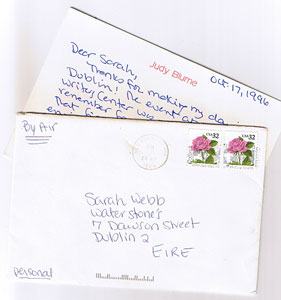 Judy Blume
Oct. 17, 1996
Dear Sarah,
Thanks for making my day
Dublin! The event at
Writers Center was
remember for
That
By Air
USA 32
USA 32
Sarah Webb
Waterstones
7 Dawson Street
Dublin 2
EIRE
personal